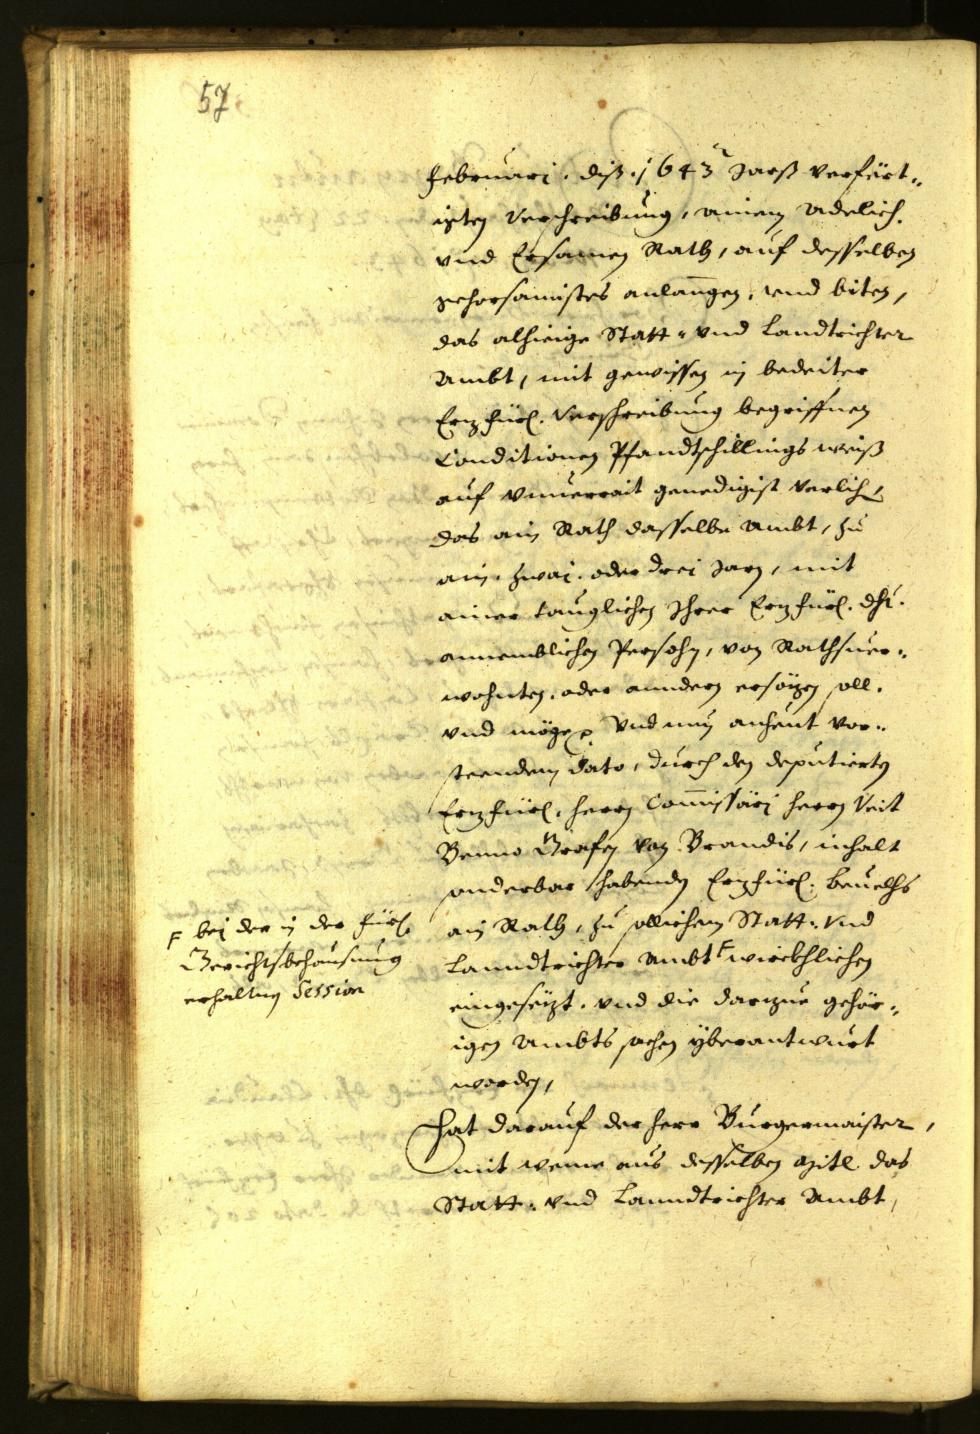 57
Februari. diß 1643 Jars verfert„
igten Verschreibung, ainem Adelich.
vnd Ersamen Rath, auf desselben
gehorsamistes anlangen, vnd biten,
das alhieige Statt- vnd Landtrichter
Ambt, mit gewissen in bedeiter
Erzfürl. Verschreibung begriffnen
Conditionen Pfandtschillings weiß
auf vnuerrait genedigist verlihen,
das ain Rath dasselbe Ambt, zu
ain. zwai. oder drei Jarn, mit
ainer tauglichen Ihrer Erzfürl. Dht.
annemblichen Persohn, von Rathsuer„
wohnten, oder anndern ersözen soll.
vnd möge, Vnd nun anheut vor„
steendem dato, durch den deputierten
Erzfürl. herrn Commissarj herrn Veit
Benno Grafen von Brandis, inhalt
sonderbar habenden Erzfürl. beuelchs
ain Rath, zu sollichem Statt- vnd
Lanndtrichter Ambt F würkhlichen
eingesezt, vnd die darzue gehör„
igen Ambts sachen yberantwurt
worden,
F bei der in der fürl.
Gerichtsbehausung
erhaltnen Session
Hat darauf der herr Burgermaister,
mit weme aus desselben mitl das
Statt- vnd Lanndtrichter Ambt,